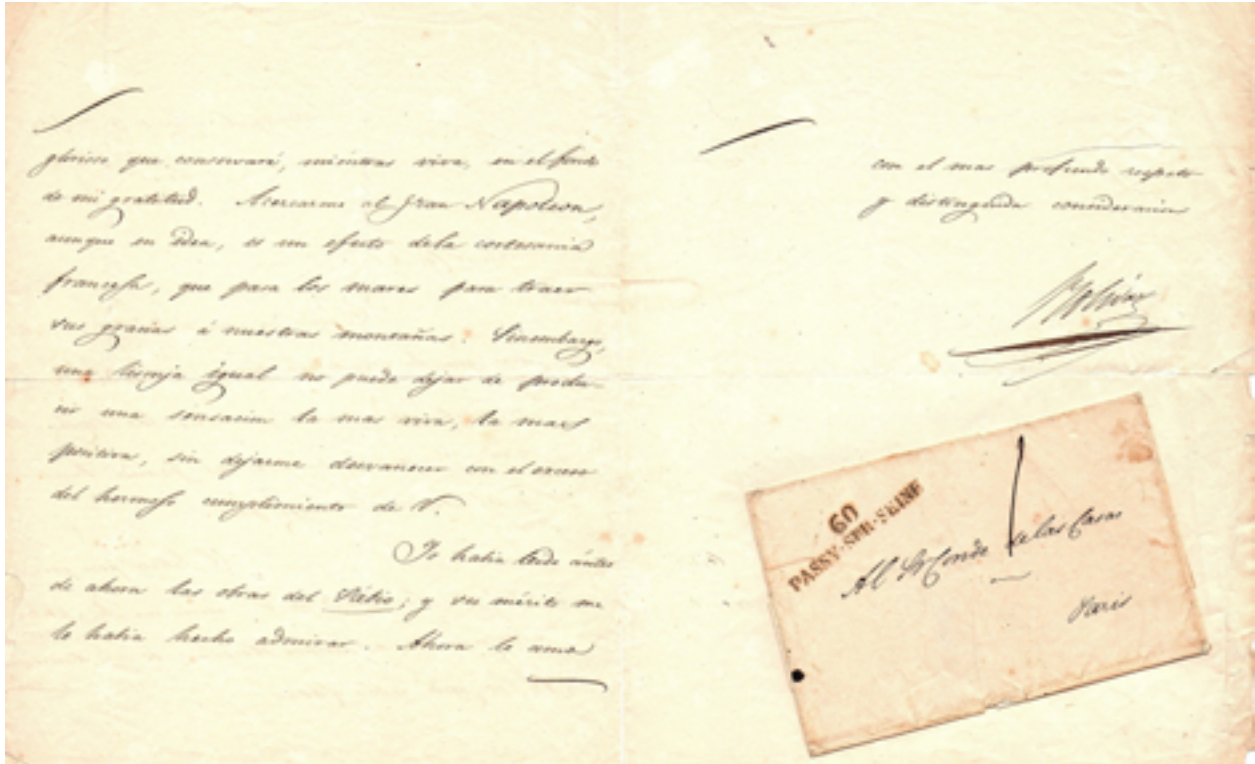 glorioso que conservaré, miéntras viva, en el fondo
de mi gratitud. Acercarme al Gran Napoleon,
aunque en idea, es un efecto dela cortesania
francesa, que pasa los mares para traer
sus gracias á nuestras montañas. Sinembargo,
una lisonja igual no puede dejar de produ-
cir una sensacion la mas viva, la mas
positiva, sin dejarme desvanecer con el exceso
del hermoso cumplimiento de V.
Yo habia leido ántes
de ahora las obras del Sabio; y su mérito me
lo habia hecho admirar. Ahora lo amo
con el mas profundo respeto
y distinguida consideracion
Bolivar
60
PASSY-SUR-SEINE
Al Sr Conde de las Casas
Paris